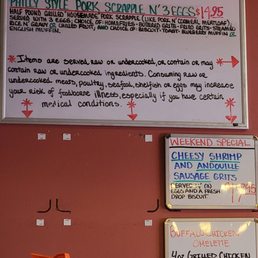 PHILLY STYLE PORK SCRAPPLE N' 3 EGGS $14.95
HALF POUND GRILLED HOUSEMADE PORK SCRAPPLE (LIKE PORK N' CORNMEAL MUFFINS),
SERVED WITH 3 EGGS, CHOICE OF HOMEFRIES
RICE OR GRILLED FRUIT, AND CHOICE OF: BISCUIT, TOAST,
ENGLISH MUFFIN
* Items are served raw or undercooked, or contain or may
contain raw or undercooked ingredients. Consuming raw or
undercooked meats, poultry, seafood, shellfish or eggs may increase
your risk of foodborne illness, especially if you have certain
medical conditions. *
WEEKEND SPECIAL
CHEESY SHRIMP
AND ANDOUILLE
SAUSAGE GRITS
SERVED W/
EGGS AND A FRESH
DROP BISCUIT
BUFFALO CHICKEN
OMELETTE
4oz GRILLED CHICKEN